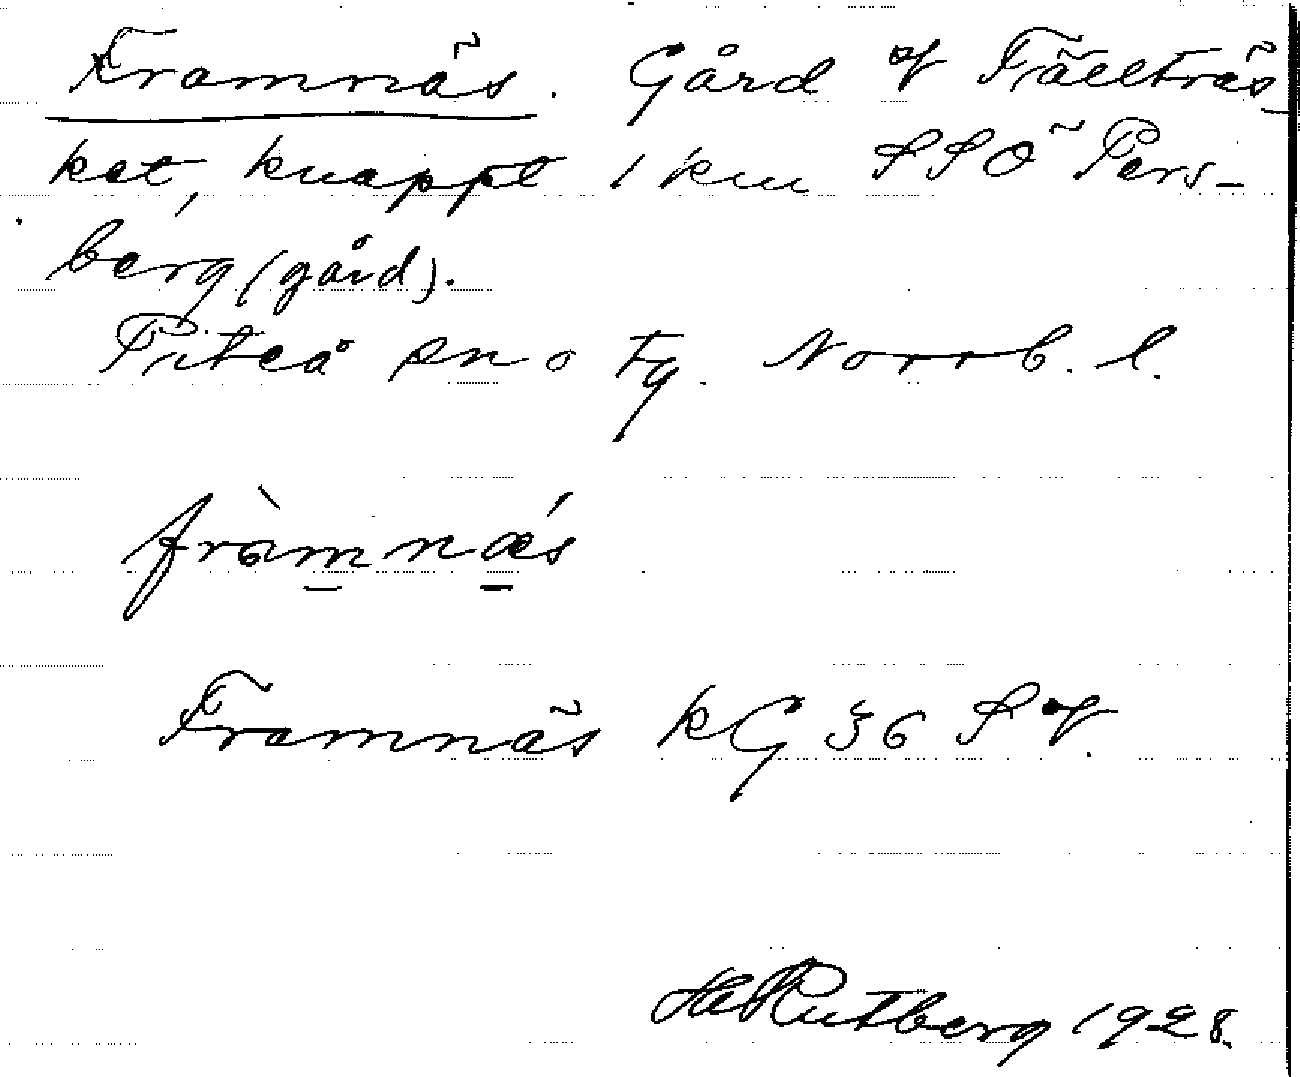 Framnäs. Gård V Fällträs-
ket, knappt 1 km SSÖ Pers-
berg (gård).
Piteå sn o tg. Norrb. l.
fràmnǽs
Framnäs kG 36 SV.
HRutberg 1928.